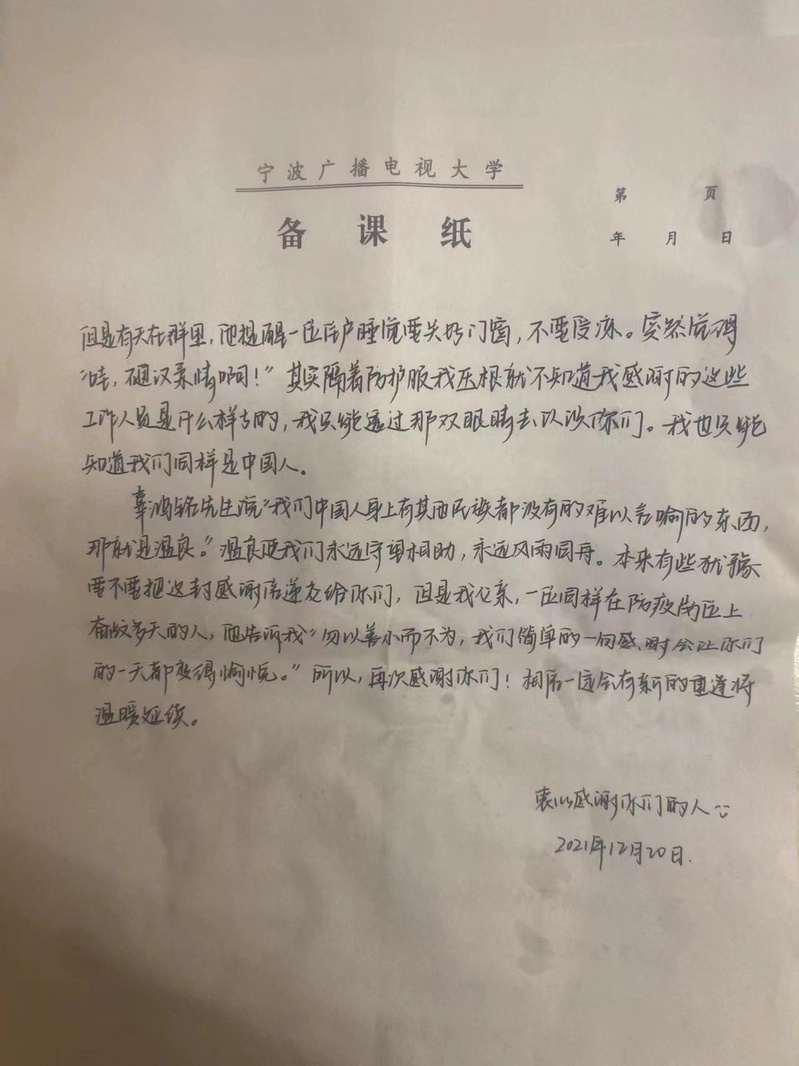 宁波广播电视大学
备课纸
第 页
年 月 日
但是有天在群里，他提醒一位住户睡觉要关好门窗，不要受冻。突然觉得
“哇，硬汉柔情啊！”其实隔着防护服我压根就不知道我感谢的这些
工作人员是什么样子的，我只能透过那双眼睛去认识你们。我也只能
知道我们同样是中国人。
辜鸿铭先生说“我们中国人身上有其他民族都没有的难以言喻的东西，
那就是温良。”温良要我们永远守望相助，永远风雨同舟。本来有些犹豫
要不要把这封感谢信递交给你们，但是我父亲，一位同样在防疫岗位上
奋战多天的人，他告诉我“勿以善小而不为，我们简单的一句感谢会让你们
的一天都变得愉悦。”所以，再次感谢你们！相信一定会有新的重逢将
温暖延续。
衷心感谢你们的人
2021年12月20日.